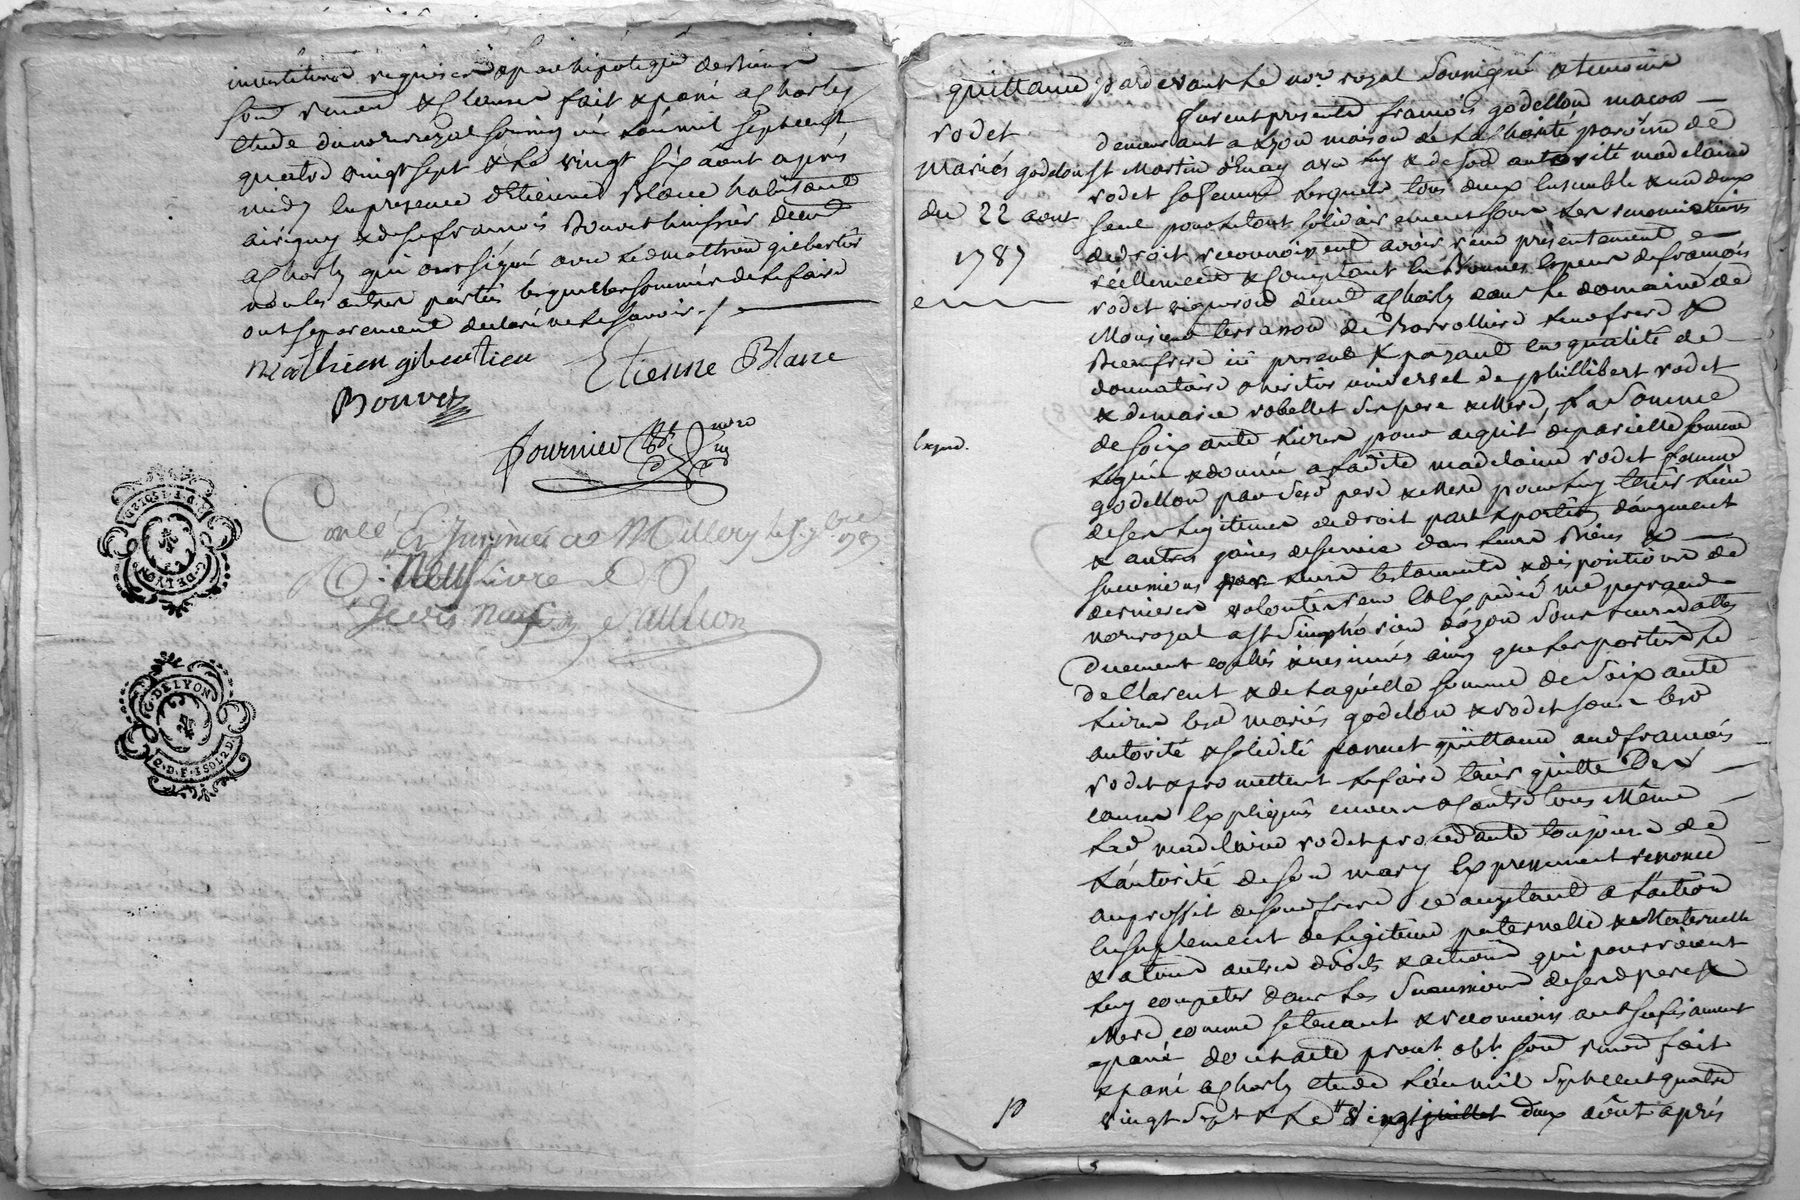 investiture requise &par hipoteque des biens
soud renon &clauses fait &passé acharly
etude dunore royal soussigné Lan mil septcent
quatre vingt sept &le vingt six août après
midy Enpresence d'Etienne Blanc habitant
airigny &desr francois Bouvet huissier demt
acharly qui ont signé avec led mathieu gibertier
non les autres parties lesquelles sommées de le faire
ont separement declaré ne le savoir ./
Mathieu gibertieu
Etienne Blanc
Bouvet
fournier nore
Con[trô]lé Et Insinué a Millery le 5 7bre 1787
neuf livres
G. DE LYON
2 D. F. 1 SOL 2 D.
G. DE LYON
2. D. F. 1 SOL 2 D.
quittance
rodet
mariés godellon
du 22 aout
1787
Exped.
pardevant Le nore royal Soussigné & temoins
furent presents francois godellon macon
demeurant a Lyon maison de La Charité paroisse de
St Martin d'Enay avec luy & de son autorité madelaine
rodet sa femme Lesquels tous deux Ensemble & un deux
seul pour le tout solidairement sous Les renonciations
de droit reconnoissent avoir reçu presentement
réellement & Comptant En Bonnes Especes de francois
rodet vigneron demt acharly dans le domaine de
Monsieur terrasson de Barrolliere Leur frere &
Beaufrere icy present & payant en qualité de
donnataire & heritier universel de phillibert rodet
& de marie robellet ses pere & Mere, La Somme
de soixante Livres pour acquit de pareille somme
Leguée & donnée a Ladite madelaine rodet femme
godellon par sesd pere & Mere pour luy tenir Lieu
de ses Legitimes endroit part & portion d'augment
& autres gaines de survie dans Leurs Biens &
successions par Leurs testaments & dispositions de
dernieres volontés reçu &Expedié me perraud
nore royal a St Simphorien d'ozon sous Leurs dattes
Duement contlés & insinués ainsy que Les parties Le
declarent & de Laquelle somme de Soixante
Livres Lesd mariés godellon & rodet sous lesd
autorité & solidité passent quittance aud francois
rodet & promettent Le faire tenir quitte Des
causes Expliquées envers & Contre tous Même
Lad madelaine rodet procedante toujours de
L'autorité de son mary Expressement renonce
au proffit de son frere ce acceptant a L'action
En suplement de Legitime paternelle & Maternelle
& a tous autres droits & actions qui pourroient
Luy competer dans Les Successions desesd pere &
Mere comme se tenant & reconnoissant sufisament
apané dont acte prout. obt. soud renon fait
& passé a Charly Etude L'an mil Septcent quatre
vingt Sept & Le vingt juillet deux aôut après